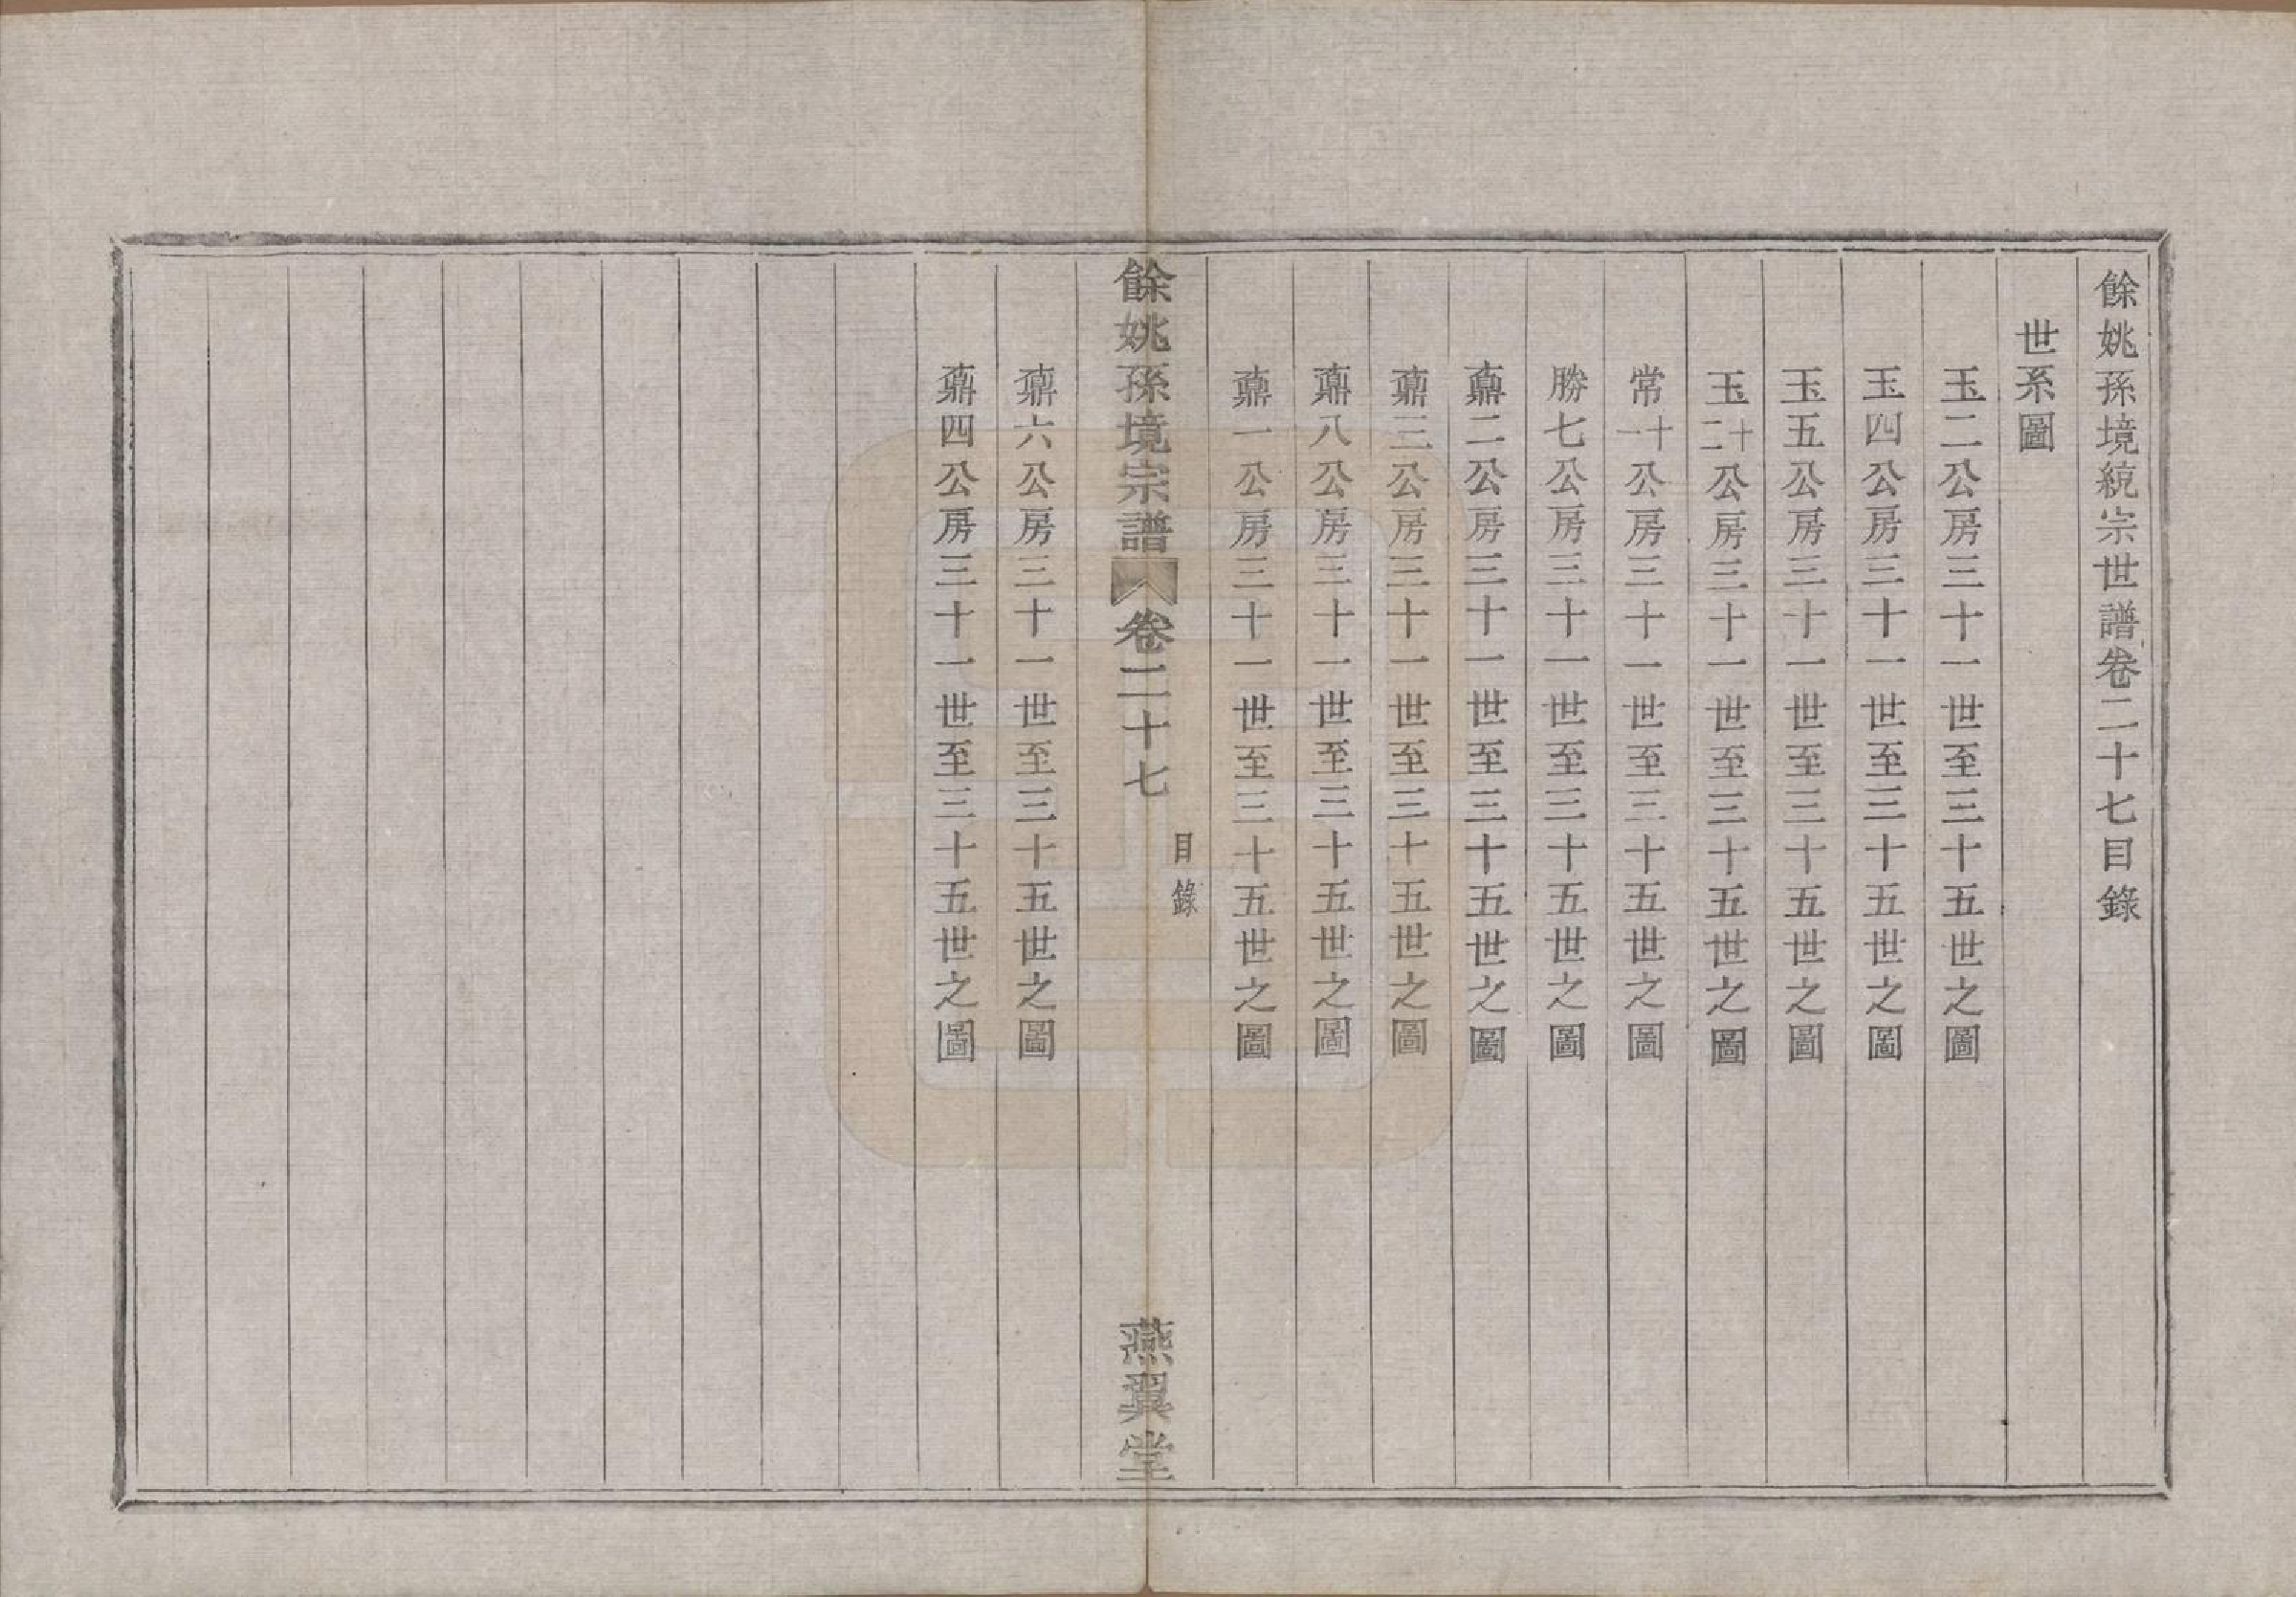 餘姚孫境統宗世譜卷二十七目錄
世系圖
玉二公房三十一世至三十五世之圖
玉四公房三十一世至三十五世之圖
玉五公房三十一世至三十五世之圖
玉十二公房三十一世至三十五世之圖
常十一公房三十一世至三十五世之圖
勝七公房三十一世至三十五世之圖
鼒二公房三十一世至三十五世之圖
鼒三公房三十一世至三十五世之圖
鼒八公房三十一世至三十五世之圖
鼒一公房三十一世至三十五世之圖
餘姚孫境宗譜 卷二十七 目錄 燕翼堂
鼒六公房三十一世至三十五世之圖
鼒四公房三十一世至三十五世之圖